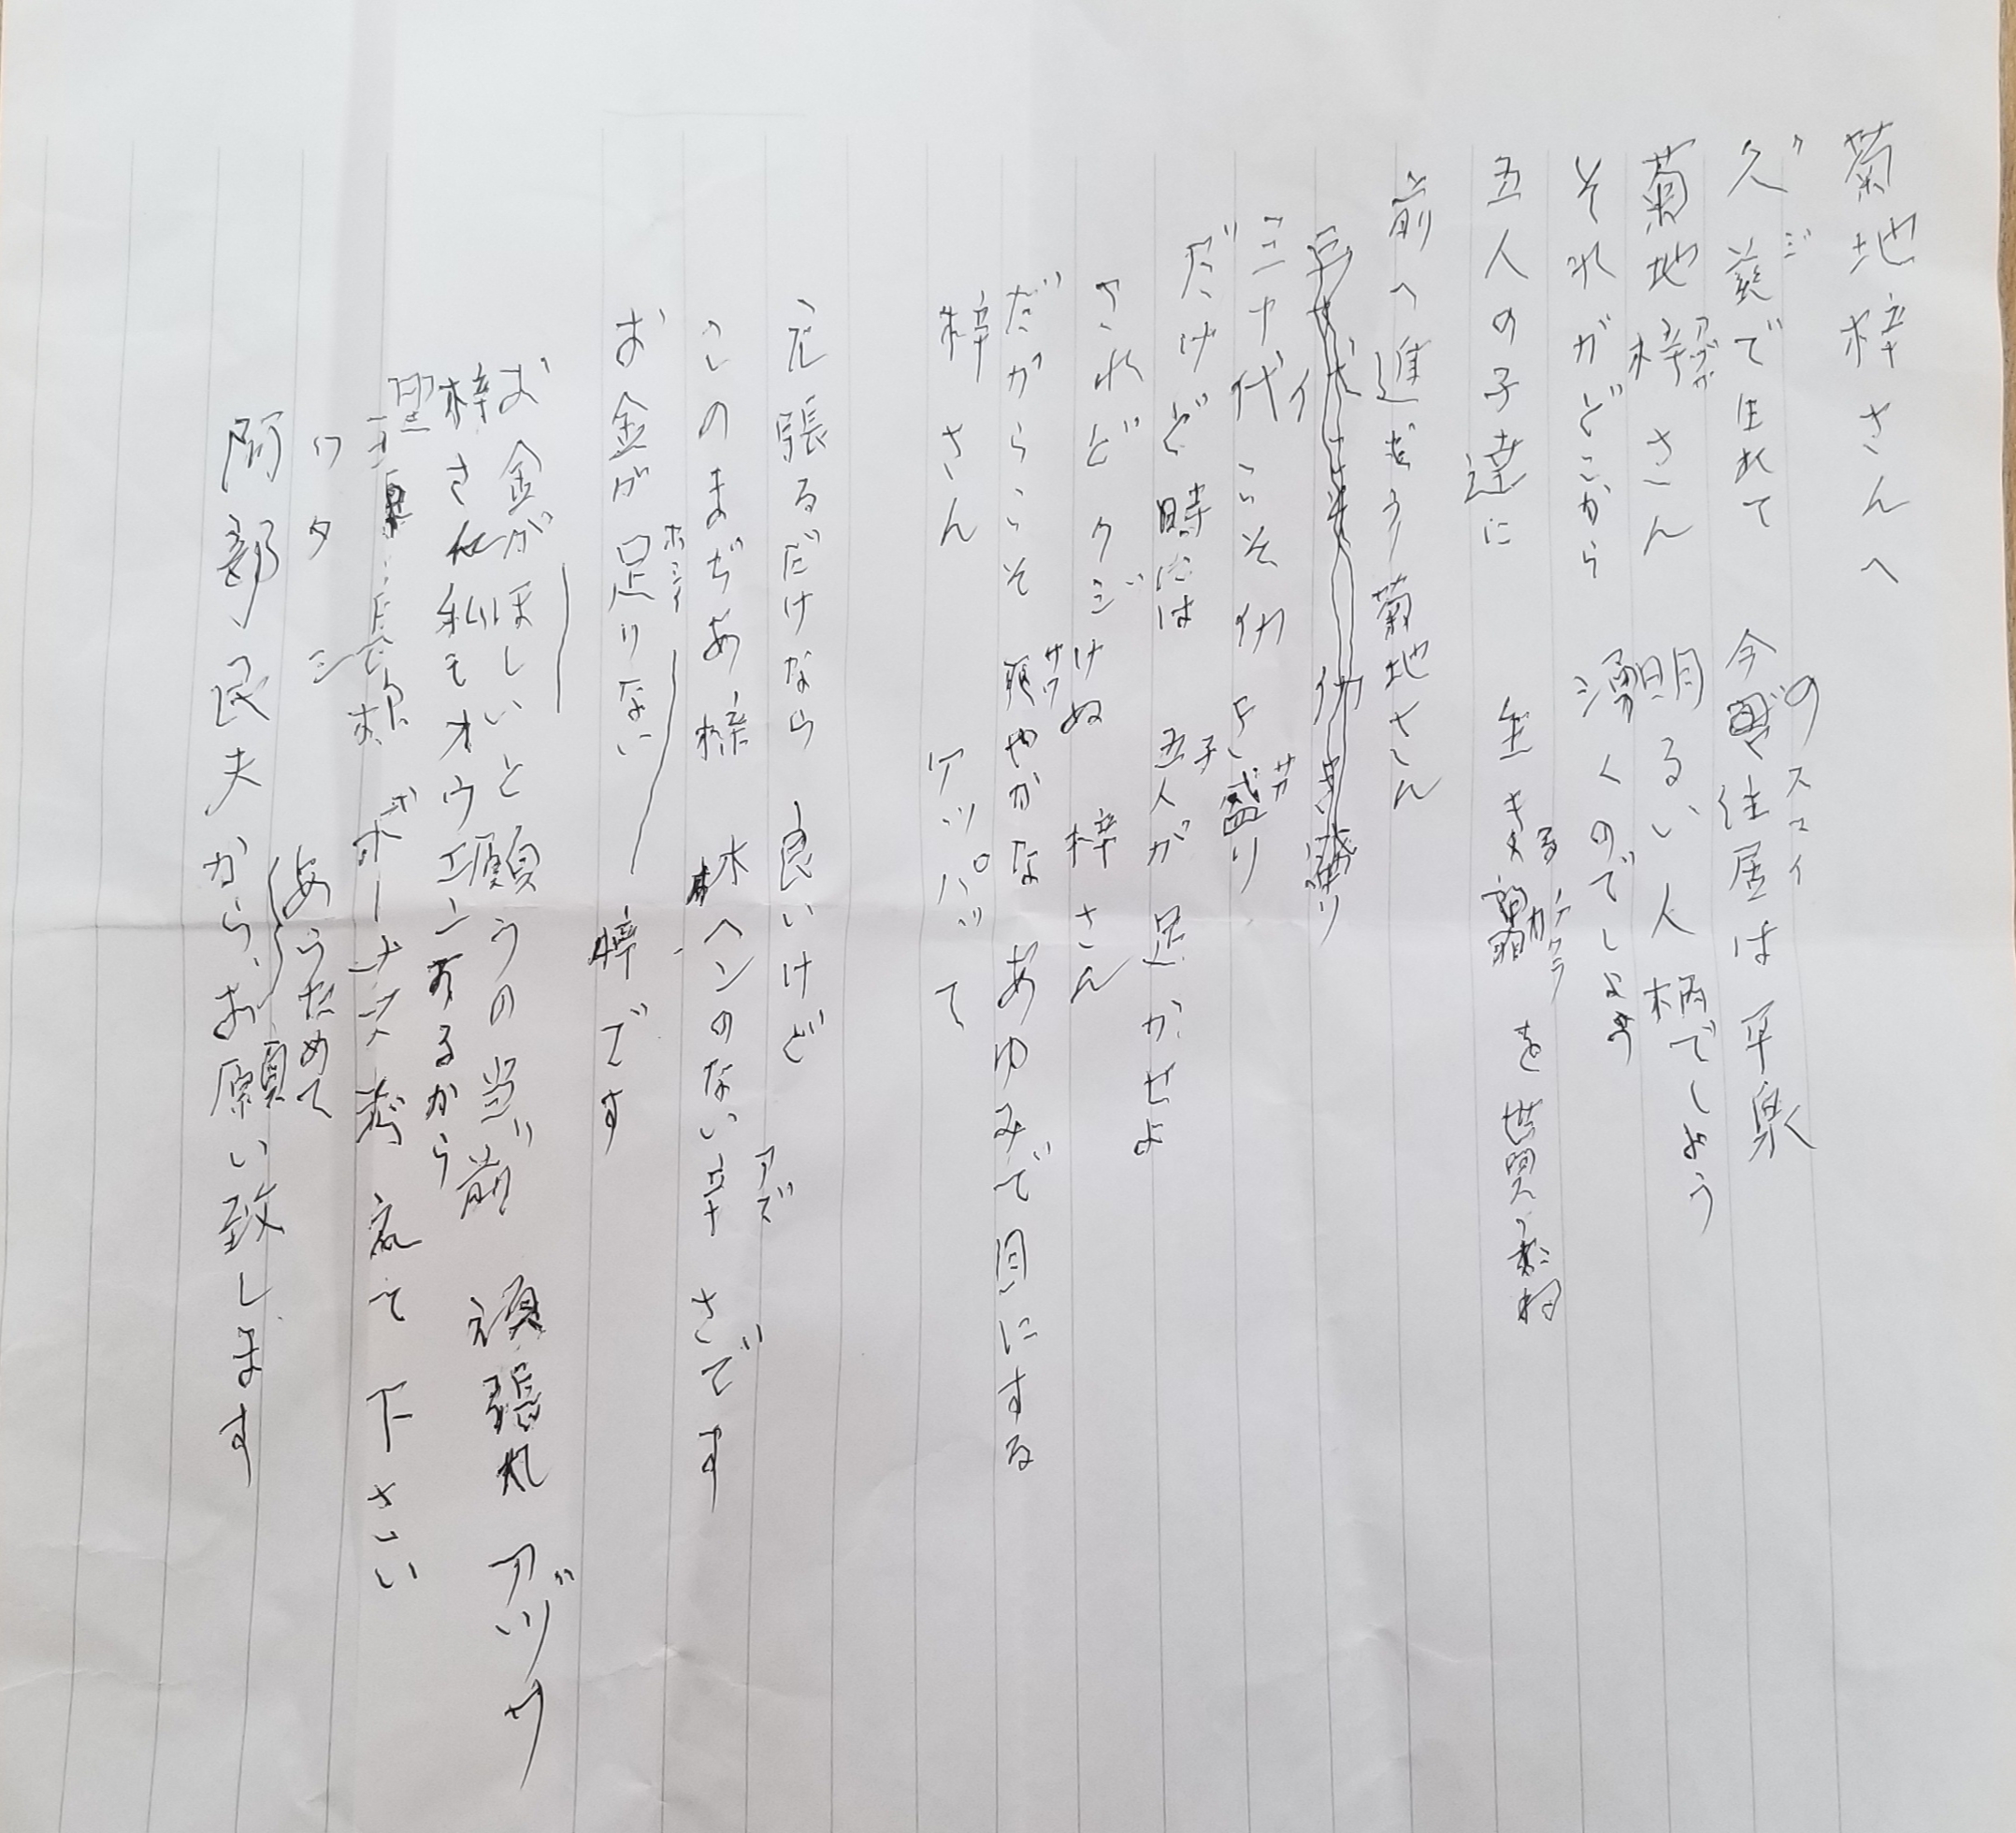 菊地梓さんへ
久慈で生れて 今の住居は平泉
菊地梓さん 明るい人柄でしょう
それがどこから 湧くのでしょう
五人の子達に 生きる を
前へ進もう菊地さん
三十代こそ働き盛り
だけど時には 五人が 足かせよ
されどクジけぬ 梓さん
だからこそ 爽やかな あゆみで目にする
梓さん アッパッて
元張るだけなら 良いけど
このまぢあ梓 木ヘンのない辛 さです
お金が足りない 梓です
お金がほしいと願うの当前 頑張れ アヅサ
梓さん私もオウエンするから
ボーナス考えて下さい
ワタシ あらためて
阿部良夫から、お願い致します